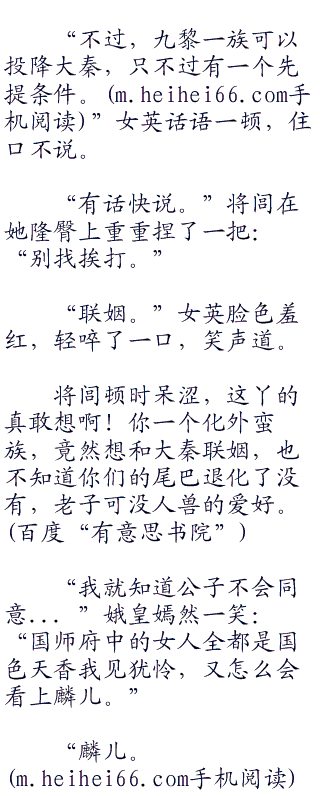 “不过，九黎一族可以
投降大秦，只不过有一个先
提条件。(m.heihei66.com手
机阅读)”女英话语一顿，住
口不说。
“有话快说。”将闾在
她隆臀上重重捏了一把：
“别找挨打。”
“联姻。”女英脸色羞
红，轻啐了一口，笑声道。
将闾顿时呆涩，这丫的
真敢想啊！你一个化外蛮
族，竟然想和大秦联姻，也
不知道你们的尾巴退化了没
有，老子可没人兽的爱好。
(百度“有意思书院”)
“我就知道公子不会同
意... ”娥皇嫣然一笑：
“国师府中的女人全都是国
色天香我见犹怜，又怎么会
看上麟儿。”
“麟儿。
(m.heihei66.com手机阅读)